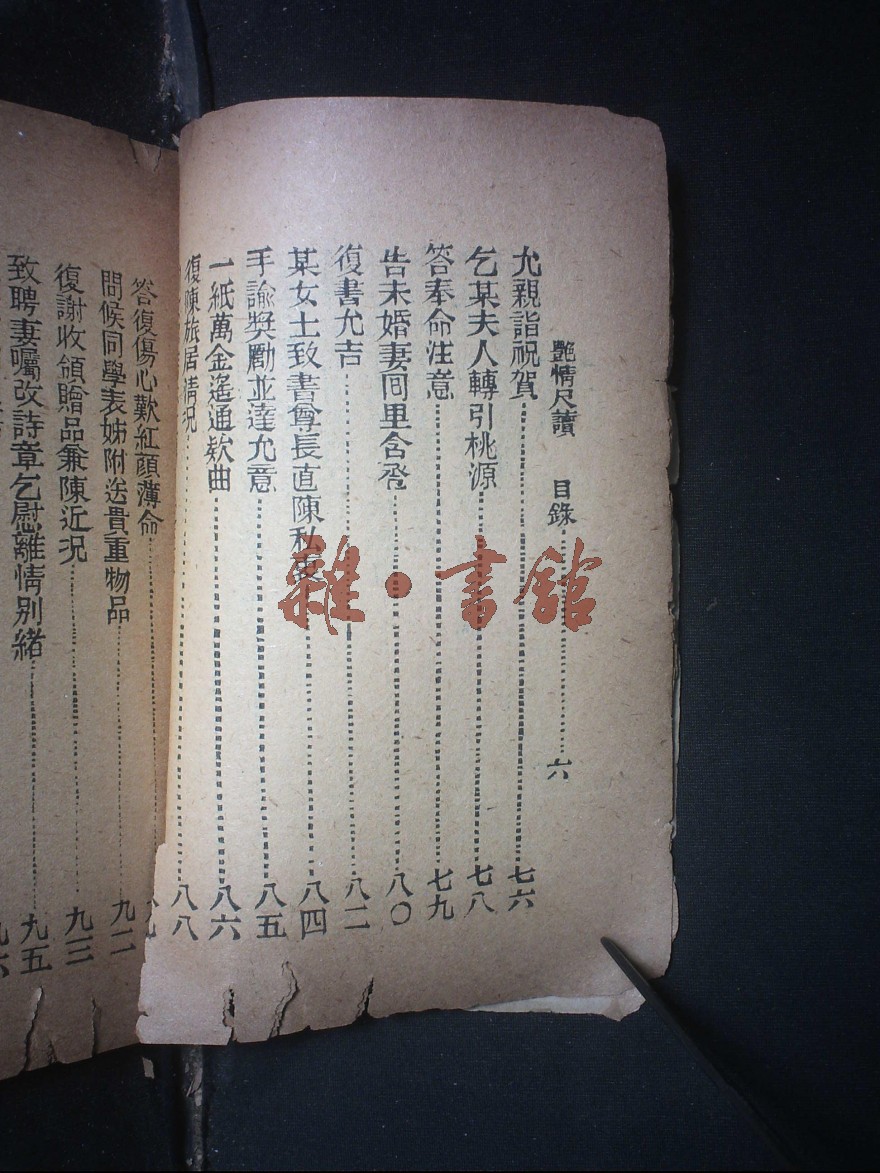 艷情尺牘 目錄 六
允親詣祝賀 七六
乞某夫人轉引桃源 七八
答奉命注意 七九
告未婚妻同里含飛 八〇
復書允吉 八二
某女士致書尊長直陳私衷 八四
手諭獎勵並達允意 八五
一紙萬金遙通欵曲 八六
復陳旅居情况 八八
答復傷心歎紅顏薄命
問候同學表姊附送貴重物品 九二
復謝收領贈品兼陳近况 九三
致聘妻囑改詩章乞慰離情別緒 九五
九六
雜·書館